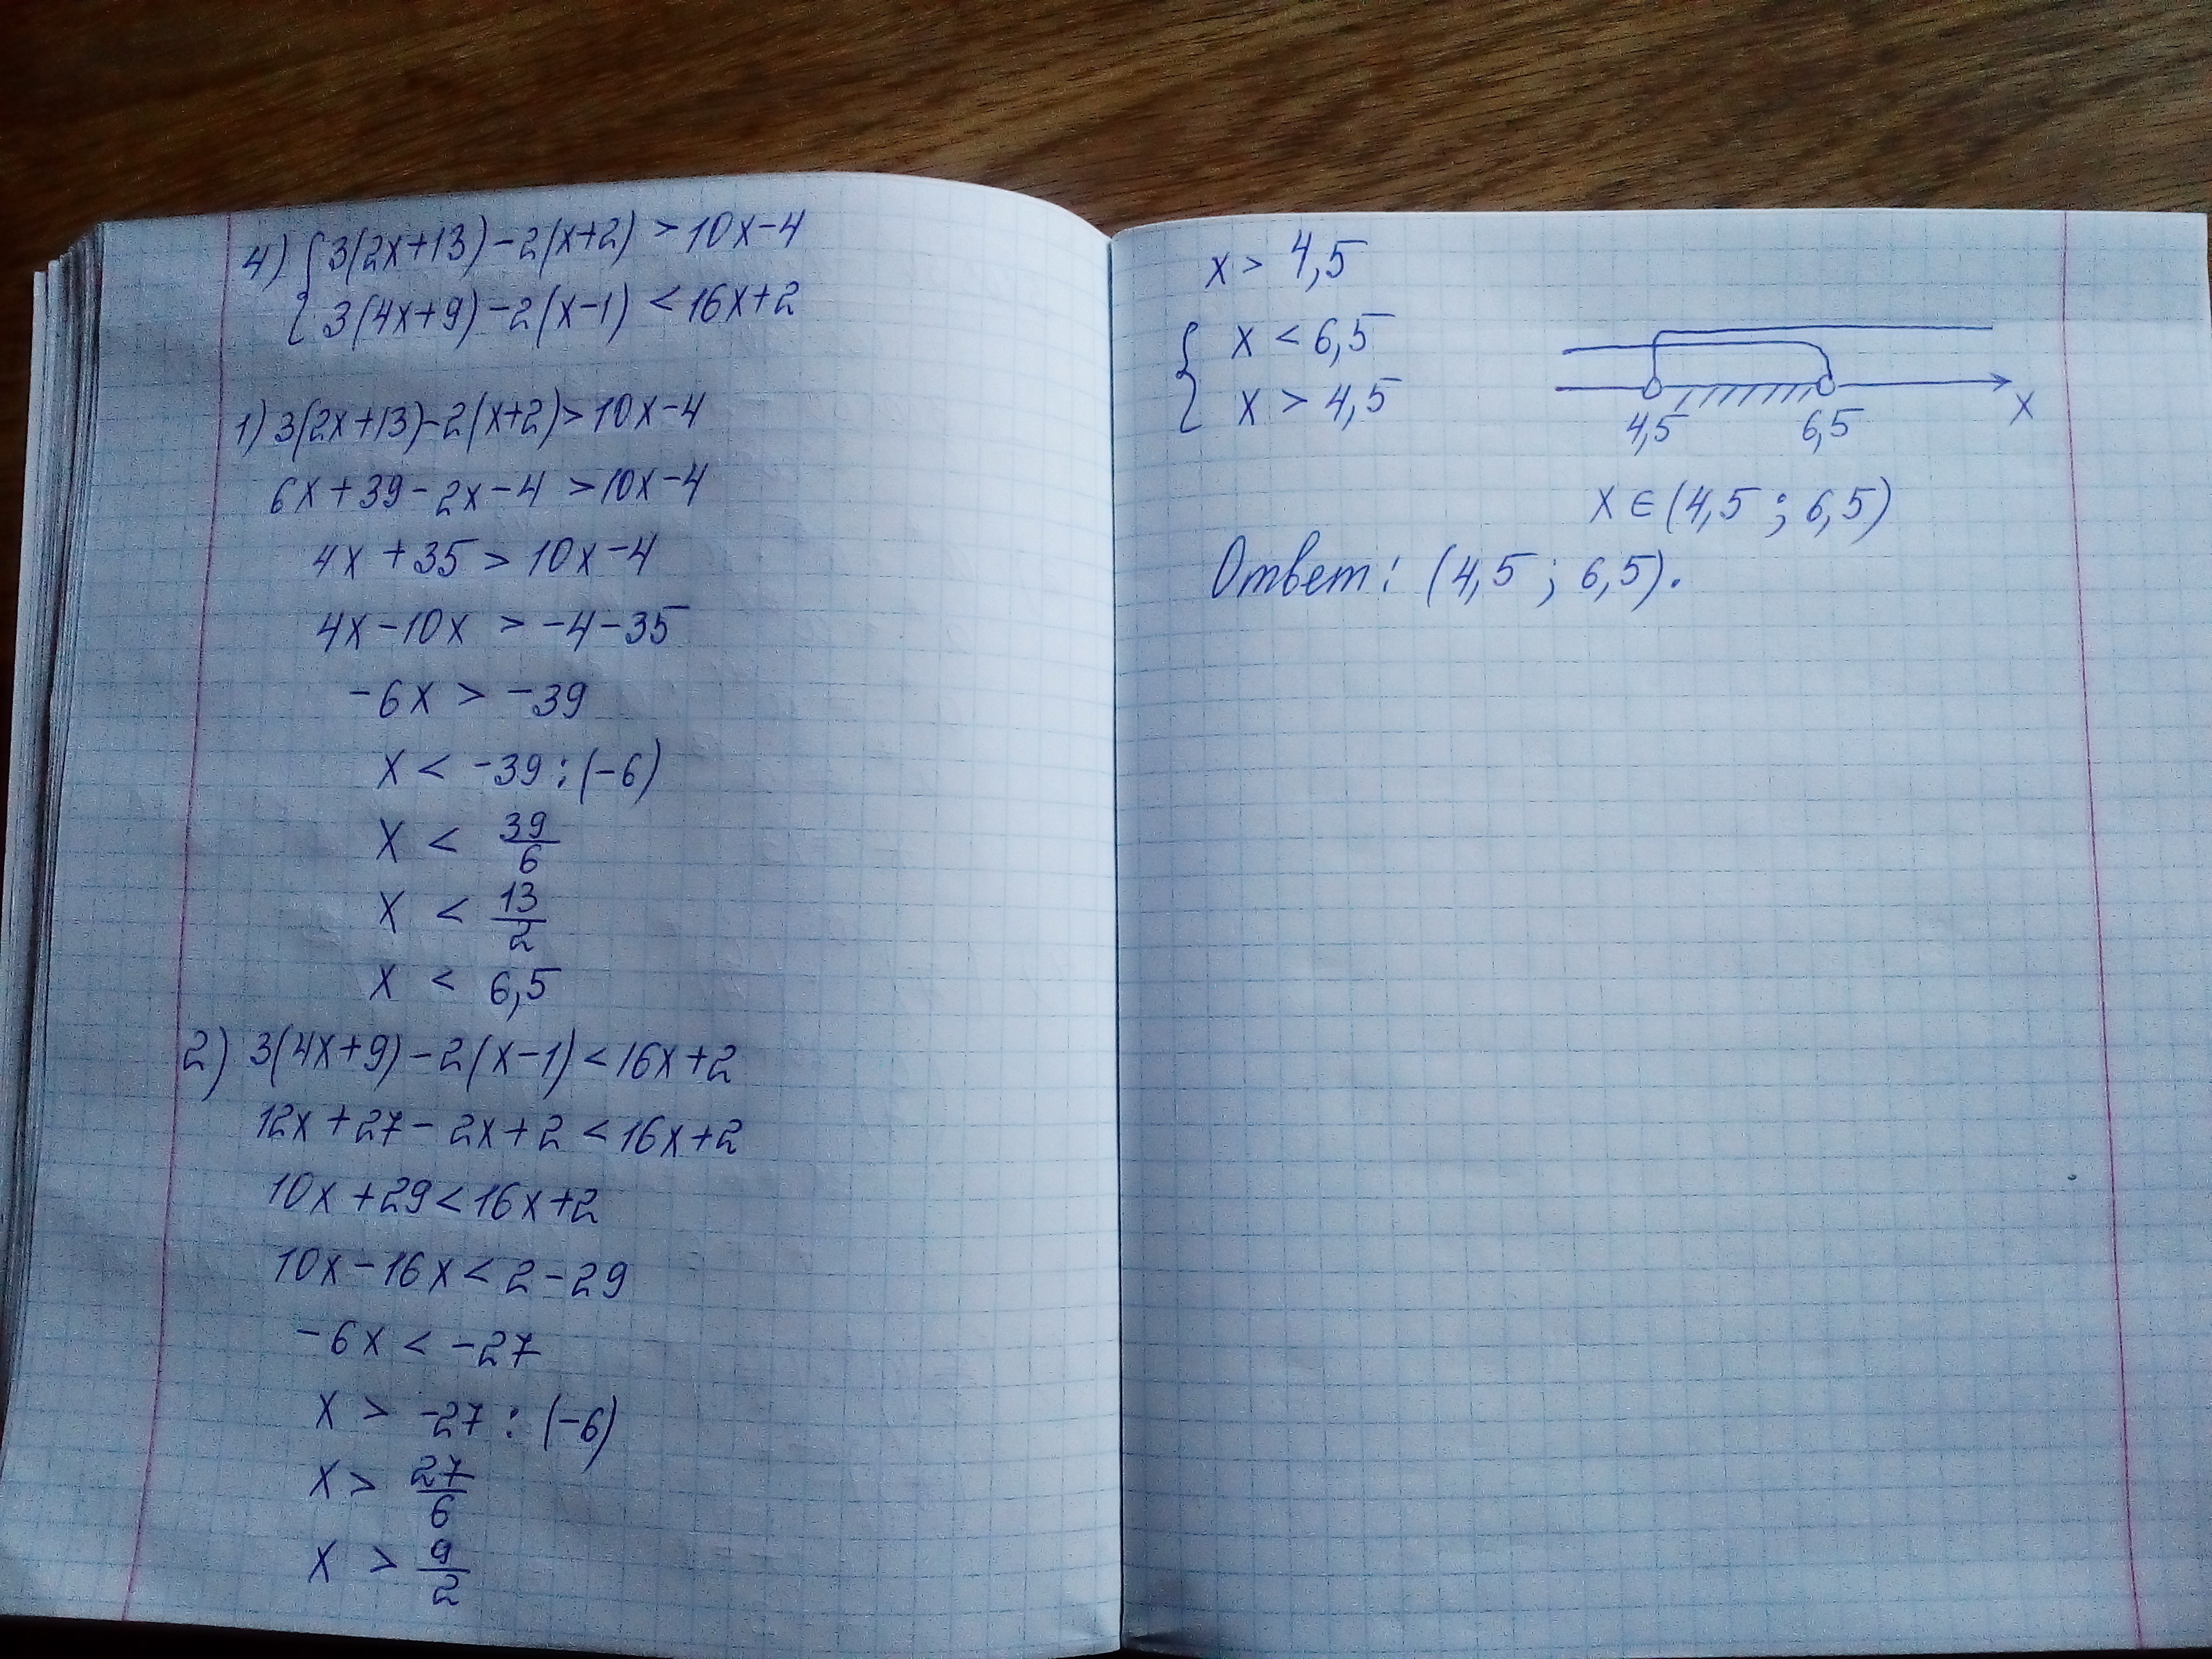 4) { 3(2x+13)-2(x+2) > 10x-4
3(4x+9)-2(x-1) < 16x+2
1) 3(2x+13)-2(x+2) > 10x-4
6x+39-2x-4 > 10x-4
4x+35 > 10x-4
4x-10x > -4-35
-6x > -39
x < -39:(-6)
x < 39/6
x < 13/2
x < 6,5
2) 3(4x+9)-2(x-1) < 16x+2
12x+27-2x+2 < 16x+2
10x+29 < 16x+2
10x-16x < 2-29
-6x < -27
x > -27:(-6)
x > 27/6
x > 9/2
x > 4,5
{ x < 6,5
x > 4,5
4,5 6,5 x
x ∈ (4,5 ; 6,5)
Ответ: (4,5 ; 6,5).